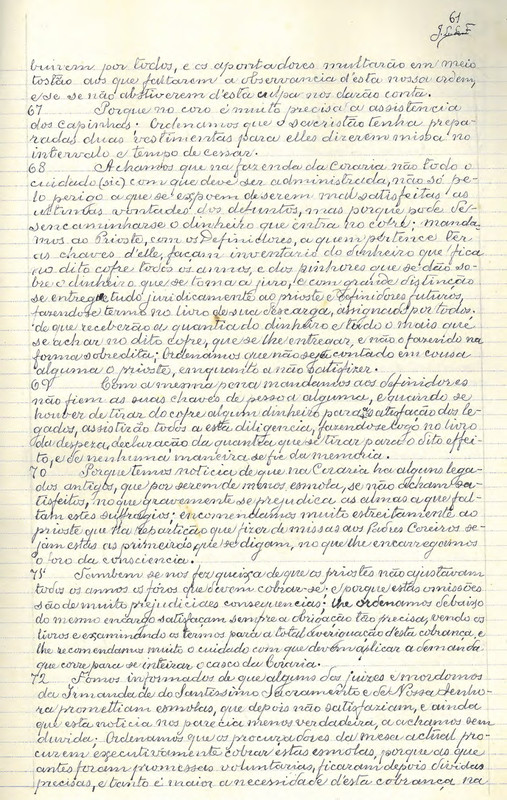 61
buirem por todos, e os apontadores multarão em meio
tostão aos que faltarem a observancia d'esta nossa ordem,
e se se não abstiverem d'esta culpa nos darão conta.
67 Porque no coro é muito precisa a assistencia
dos Capinhas: Ordenamos que o sacristão tenha prepa-
radas duas vestimentas para elles dizerem missa no
intervalo e tempo de cessar.
68 Achamos que na fazenda da Coraria não todo o
cuidado (sic) com que deve ser administrada, não só pe-
lo perigo a que se expoem de serem mal satisfeitas as
ultimas vontades dos defuntos, mas porque pode de-
sencaminharse o dinheiro que entra no cofre; manda-
mos ao Prioste, com os Definidores, a quem pertence ter
as chaves d'elle, façam inventario do dinheiro que fica
no dito cofre todos os annos, e dos pinhores que se dão so-
bre o dinheiro que se toma a juro, e com grande distincção
se entregue tudo juridicamente ao prioste e definidores futuros,
fazendo-se termo no livro de sua descarga, assignado por todos.
de que receberão a quantia do dinheiro e todo o mais que
se achar no dito cofre, que se lhe entregar, e não o fazendo na
forma sobredita; Ordenamos que não seja contado em cousa
alguma o prioste, emquanto a não satisfizer.
69 Com a mesma pena mandamos aos definidores
não fiem as suas chaves de pessoa alguma, e quando se
houber de tirar do cofre algum dinheiro para satisfação dos le-
gados, assistirão todos a esta diligencia, fazendo-se logo no livro
da despeza, declaração da quantia que se tirar para o dito effei-
to, e de nenhuma maneira se fie da memoria.
70 Porque temos noticia de que na Coraria ha alguns lega-
dos antigos, que por serem de menos esmola, se não acham sa-
tisfeitos, no que gravemente se prejudica as almas a que fal-
tam estes sufragios; encomendamos muito estreitamente ao
prioste que na repartição que fizer de missas aos Padres Coreiros se-
jam estas as primeiras que se digam, no que lhe encarregamos
o foro da consciencia.
71 Tambem se nos fez queixa de que os priostes não ajustavam
todos os annos os foros que devem cobrar-se; e porque estas omissões
são de muito prejudiciaes consequencias; lhe ordenamos debaixo
do mesmo encargo satisfaçam sempre a obrigação tão precisa, vendo os
livros e examinando os termos para a total averiguação d'esta cobrança, e
lhe recomendamos muito o cuidado com que devem aplicar a demanda
que corre para se inteirar o casco da Coraria.
72 Fomos informados de que alguns dos juizes e mordomos
da Irmandade do Santissimo Sacramento e de Nossa Senho-
ra promettiam esmolas, que depois não satisfariam, e ainda
que esta noticia nos parecia menos verdadeira, a achamos sem
duvida; Ordenamos que os procuradores da mesa actual pro-
curem executivamente cobrar estas esmolas, porque as que
antes foram promessas voluntarias, ficaram depois dividas
precisas, e tanto é maior a necessidade d'esta cobrança, na